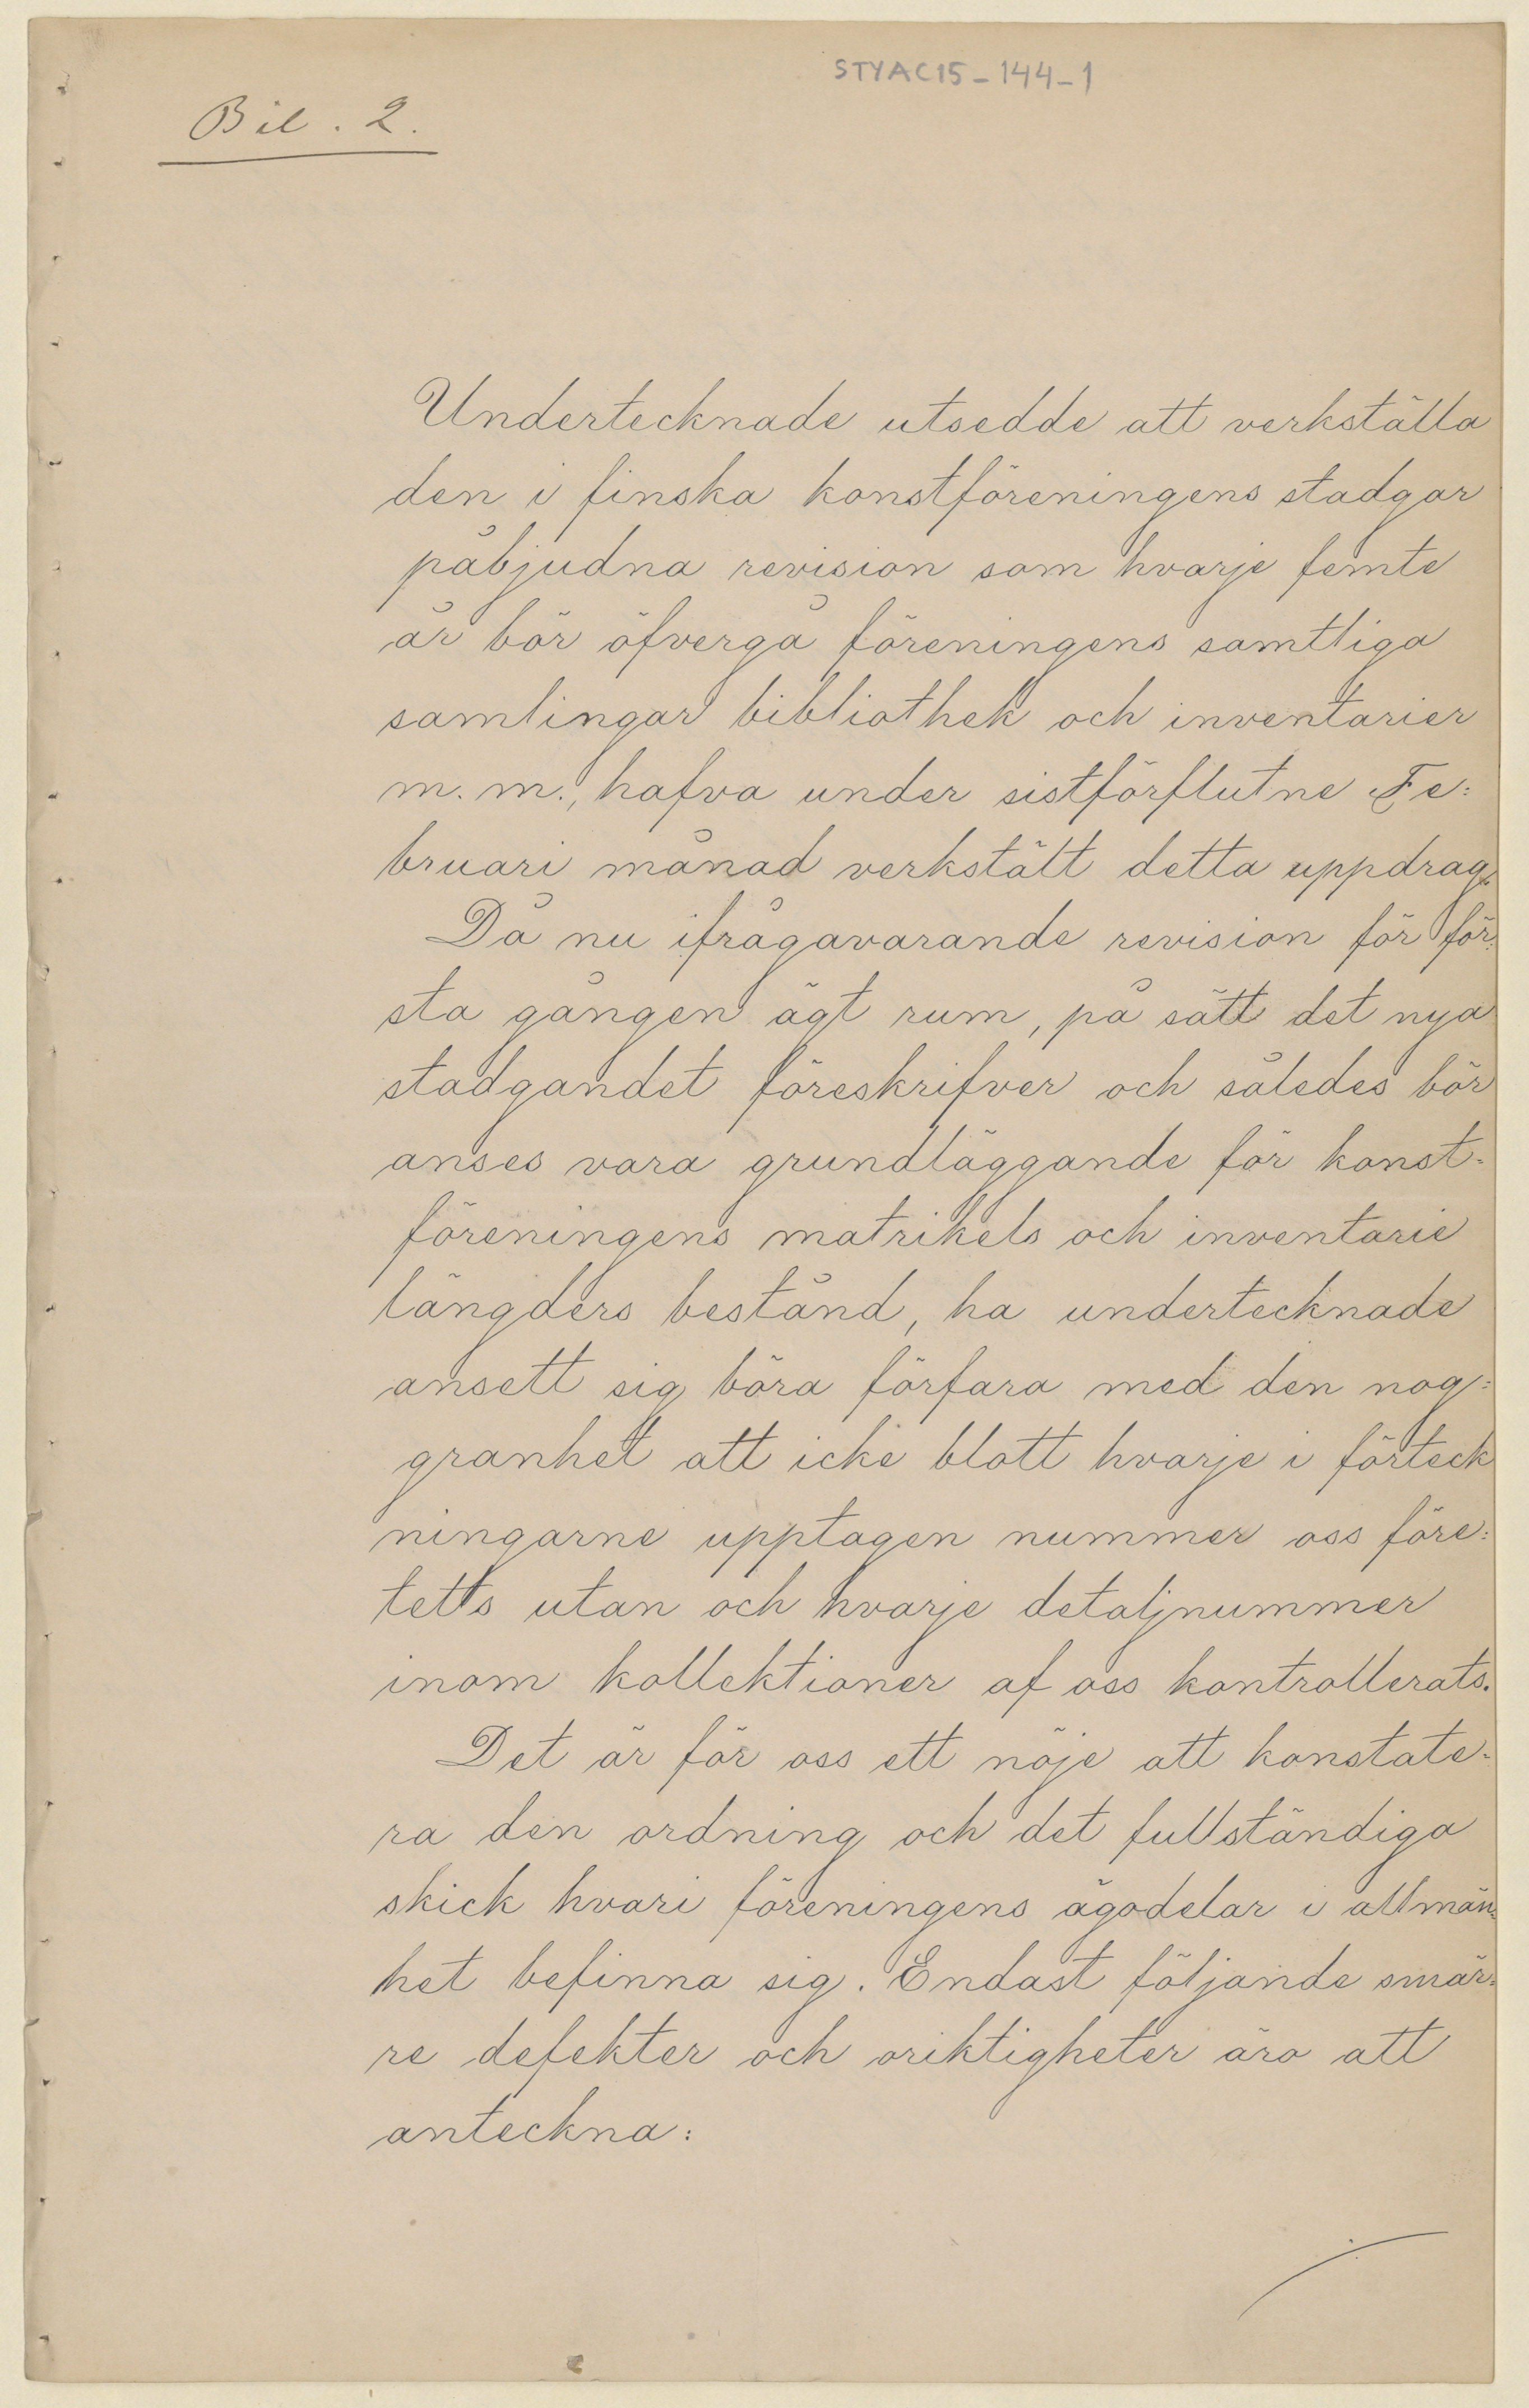 STYAC15-144-1
Bil. 2.
Undertecknade utsedde att verkställa
den i finska konstföreningens stadgar
påbjudna revision som hvarje femte
år bör öfvergå föreningens samtliga
samlingar bibliothek och inventarier
m. m., hafva under sistförflutne Fe:
bruari månad verkstält detta uppdrag.
Då nu ifrågavarande revision för för:
sta gången ägt rum, på sätt det nya
stadgandet föreskrifver och således bör
anses vara grundläggande för konst-
föreningens matrikels och inventarie
längders bestånd, ha undertecknade
ansett sig böra förfara med den nog:
granhet att icke blott hvarje i förteck
ningarne upptagen nummer oss före:
tetts utan och hvarje detaljnummer
inom kollektioner af oss kontrollerats.
Det är för oss ett nöje att konstate-
ra den ordning och det fullständiga
skick hvari föreningens ägodelar i allmän:
het befinna sig. Endast följande smär:
re defekter och oriktigheter äro att
anteckna: